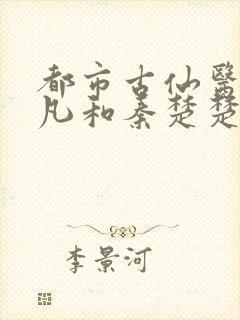 都市古仙醫
凡和秦楚楚
李景河